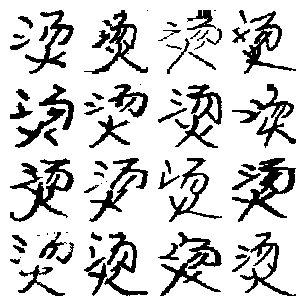 烫烫烫烫
烫烫烫烫
烫烫烫烫
烫烫烫烫